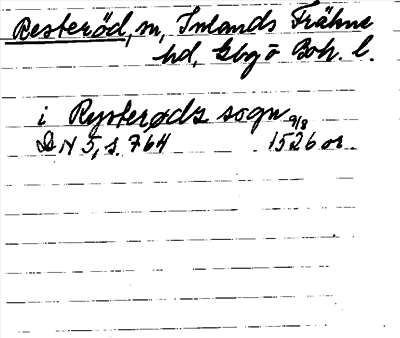 Resteröd, sn, Inlands Fräkne
hd, Gbg o Boh. l.
i Rysterødz sogn
DN 5, s. 764 1526 9/8 or.